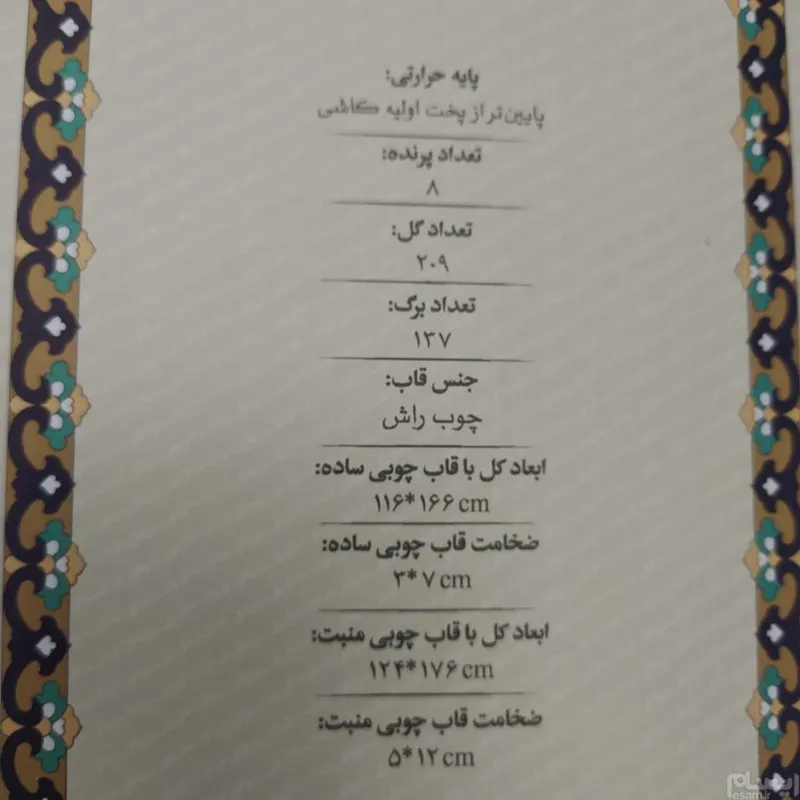 پایه حرارتی:
پایین‌تر از پخت اولیه کاشی
تعداد پرنده:
۸
تعداد گل:
۲۰۹
تعداد برگ:
۱۳۷
جنس قاب:
چوب راش
ابعاد کل با قاب چوبی ساده:
۱۱۶*۱۶۶ cm
ضخامت قاب چوبی ساده:
۳*۷ cm
ابعاد کل با قاب چوبی منبت:
۱۲۴*۱۷۶ cm
ضخامت قاب چوبی منبت:
۵*۱۲ cm
ایسام
esam.ir